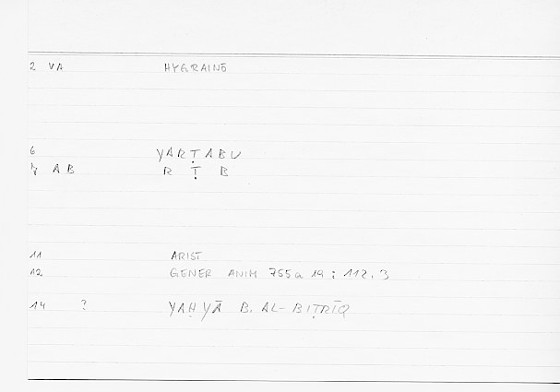 2 VA HYGRAINŌ
6 YARṬABU
7 AB R Ṭ B
11 ARIST
12 GENER ANIM 755a 19 ; 112.3
14 ? YAḤYĀ B. AL-BIṬRĪQ